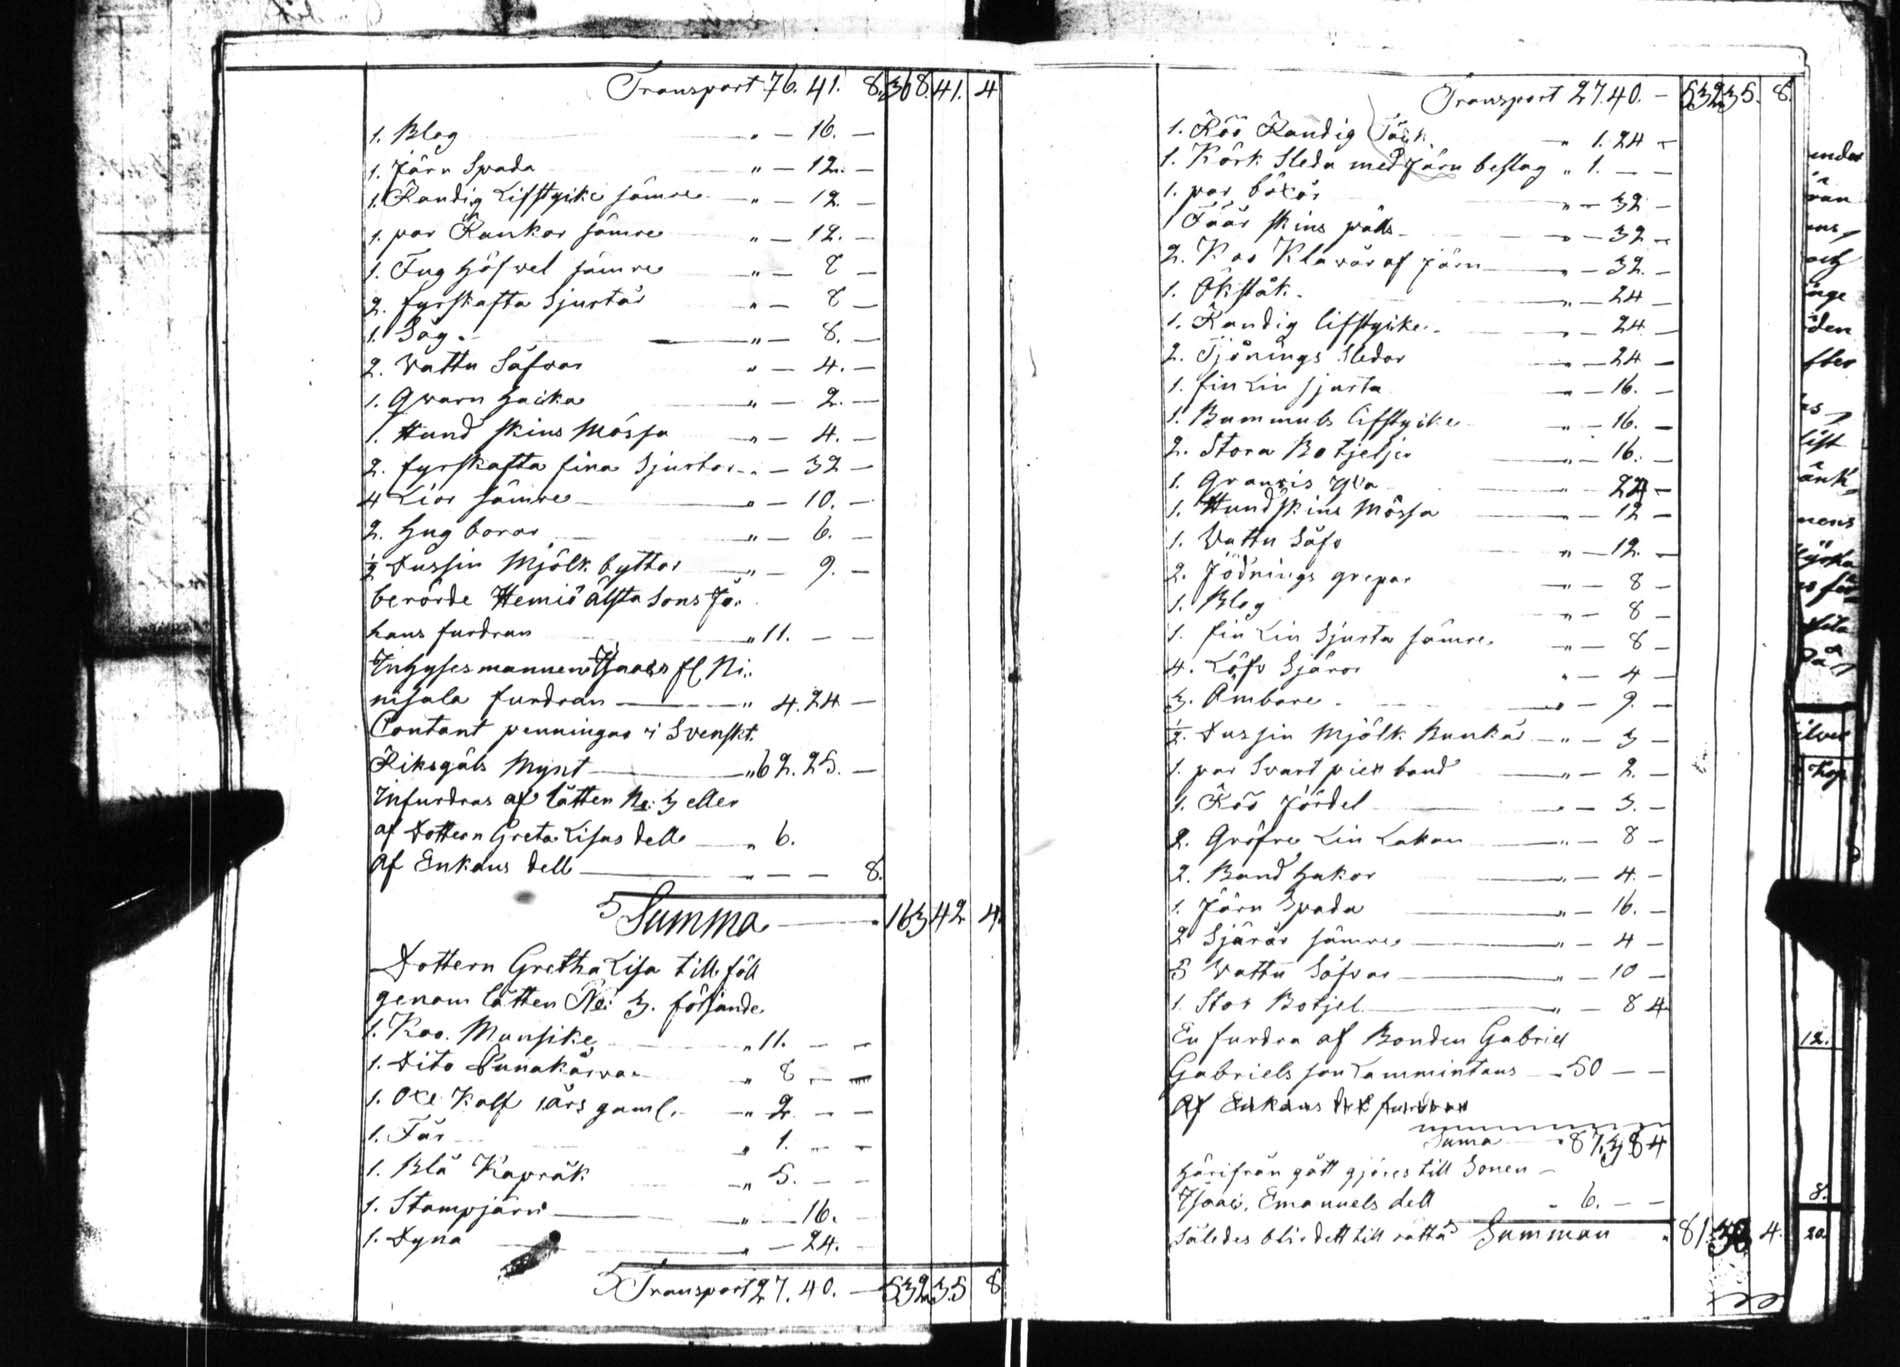 Transport 76. 41. 8. 368. 41. 4
1. Blog " — 16. —
1. Järn Spada " — 12. —
1. Randig Lifstyike sämre " — 12. —
1. par Rankor sämre " — 12. —
1. Fug Höfvel sämre " — 8 —
2. fyrskafta Sjurtår " — 8 —
1. Såg. " — 8. —
2. Vattu Såfvar " — 4. —
1. Qvarn Hacka " — 2. —
1. Hund skins Mössa " — 4. —
2. fyrskafta fina Sjurtor " — 32 —
4 Lior sämre " — 10. —
2. Hug borar " — 6. —
½ Dussin Mjölk byttor " — 9. —
berörde Hemiö Älsta Sons Jo:
hans furdran " 11. — —
Inhysesmannen Isaacs fl Ni:
nisala furdran " 4. 24 —
Contant penningar i Svenskt
Riksgäls Mynt " 62. 25. —
Infurdras af låtten No: 3 eller
af Dottern Greta Lisas dell " 6.
Af Enkans dell " — — 8.
Summa 163 42 4.
Dottern Gretha Lisa till föll
genom låtten No: 3. följande
1. Koo. Mansike " 11. — —
1. Dito Punakårva " 8 — —
1. Oxe Kalf 1 års gaml. " 2 — —
1. Får " 1. — —
1. Blå Kapråk " 5. — —
1. Stampjärn " — 16. —
1. Dyna " — 24. —
Transport 27. 40. — 532. 35 8
Transport 27. 40. — 532 35. 8.
1. Röö Randig Täck " 1. 24 —
1. Körk Sleda med Järn beslag " 1. — —
1. par böxår " — 32 —
1 Fåår skins päls " — 32 —
2. Koo Klavår af Järn " — 32. —
1. Ökståk. " — 24 —
1. Randig lifstyike. " — 24 —
2. Tjörnings Sledar " — 24 —
1. fin Lin sjurta " — 16. —
1. Bummuls lifstyike " — 16. —
2. Stora Botjeljer " — 16. —
1. Granris yxa " — 24 —
1. Hundskins Mössa " — 12 —
1. Vattu Såfv " — 12. —
2. Jödnings grepar " — 8 —
1. Blog " — 8 —
1. fin Lin Sjurta sämre " — 8 —
4. Löfv Sjäror " — 4 —
3. Ambare " — 9 —
½. Dussin Mjölk Bunkar " — 3 —
1. par Svart pick band " — 2. —
1. Röö Jördel " — 3. —
2. Gröfre Lin Lakan " — 8 —
2. Band Hakor " — 4. —
1. Järn Spada " — 16. —
2 Sjäror sämre " — 4 —
5 Vattu Såfvar " — 10 —
1. Stor Botjel " — 8 4
En furdra af Bonden Gabriel
Gabriels son Lammintaus " 50 — —
Af Enkans dell furdran
Suma " 87. 38 4
Härifrån gått gjöres till Sonen —
Isaac Emanuels dell " 6. — —
Således blir dett till rätta Summan " 81. 38 4.